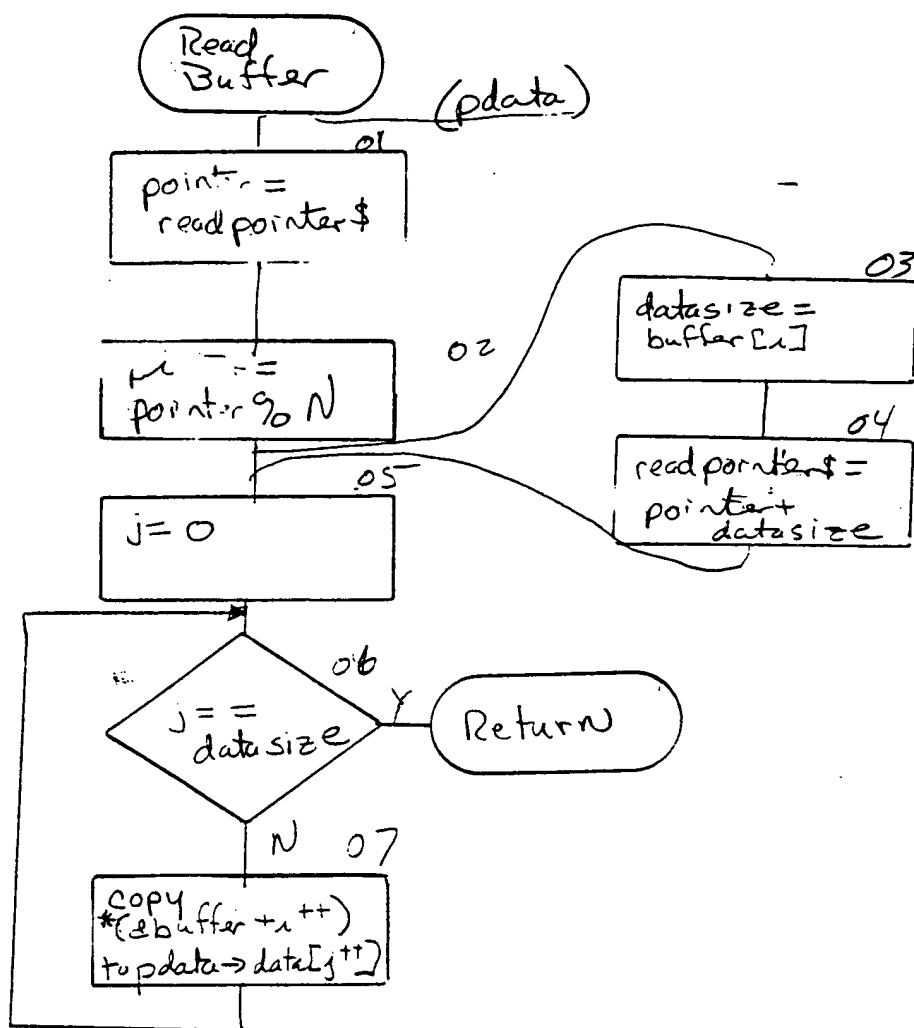 Read
Buffer
(pdata)
01
pointer =
readpointer$
02
=
pointer % N
03
datasize =
buffer[i]
04
readpointer$ =
pointer +
datasize
05
j = 0
06
j ==
datasize
Y
Return
N
07
copy
*(&buffer + i++)
to pdata → data[j++]